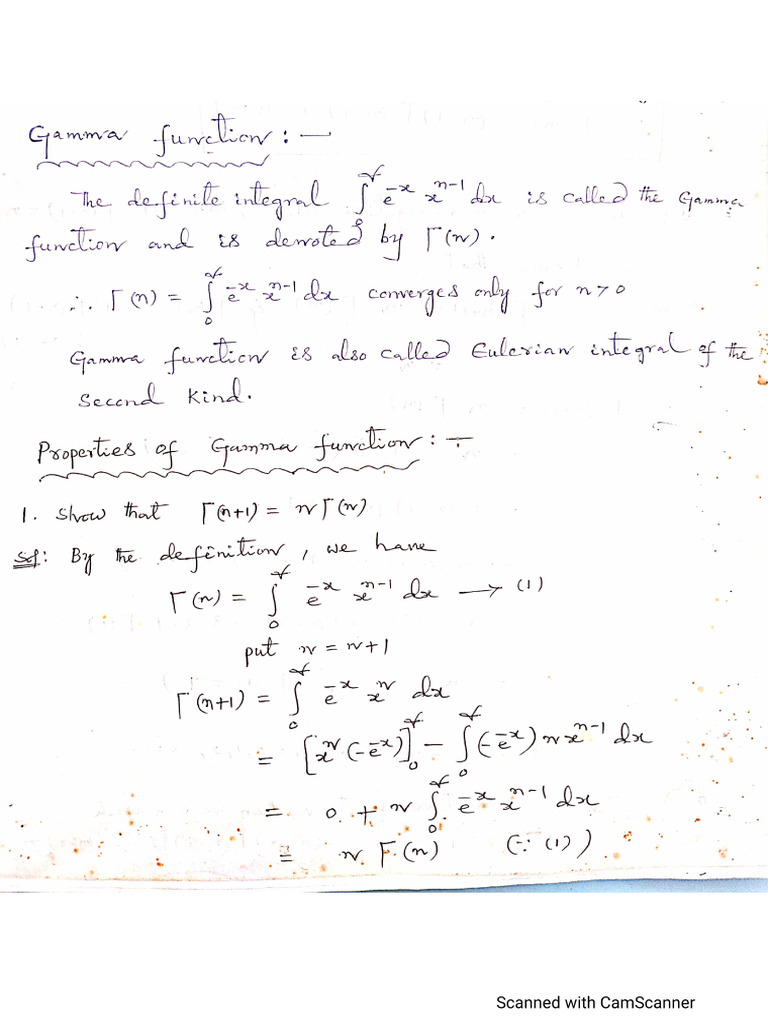 Gamma function : —
The definite integral ∫₀^∞ e^{-x} x^{n-1} dx is called the Gamma
function and is denoted by Γ(n).
∴ Γ(n) = ∫₀^∞ e^{-x} x^{n-1} dx converges only for n>0
Gamma function is also called Eulerian integral of the
second kind.
Properties of Gamma function : —
1. Show that Γ(n+1) = n Γ(n)
Sol: By the definition, we have
Γ(n) = ∫₀^∞ e^{-x} x^{n-1} dx → (1)
put n = n+1
Γ(n+1) = ∫₀^∞ e^{-x} x^n dx
= [x^n (-e^{-x})]₀^∞ - ∫₀^∞ (-e^{-x}) n x^{n-1} dx
= 0 + n ∫₀^∞ e^{-x} x^{n-1} dx
= n Γ(n) (∵ (1))
Scanned with CamScanner